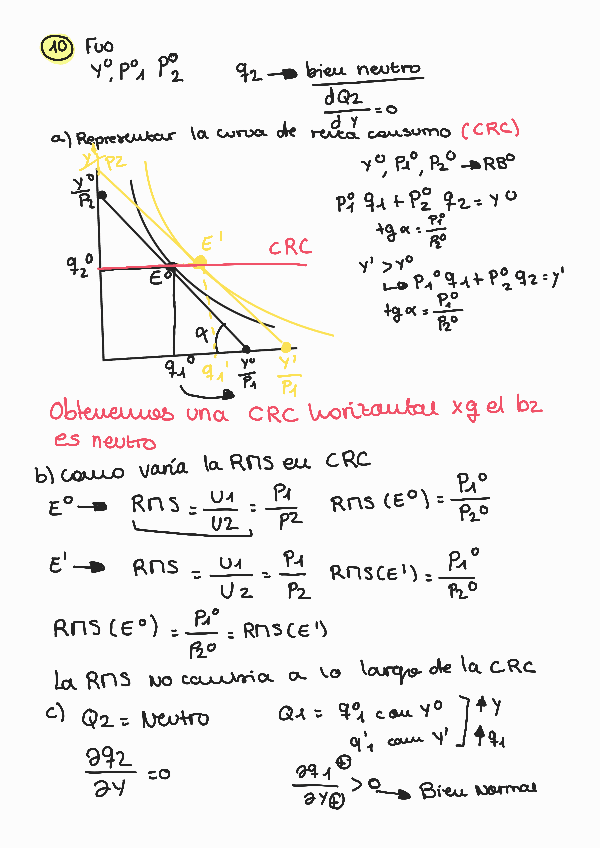 10 FUO
Y⁰, P⁰₁ P⁰₂ q₂ → bien neutro
dQ₂/dY = 0
a) Representar la curva de renta consumo (CRC)
Y'/P2
Y⁰/P₂
Y⁰, P₁⁰, P₂⁰ → RB⁰
P₁⁰ q₁ + P₂⁰ q₂ = Y⁰
tg α = P₁⁰/P₂⁰
E' CRC
q₂⁰ E⁰
Y' > Y⁰
↳ P₁⁰ q₁ + P₂⁰ q₂ = Y'
tg α = P₁⁰/P₂⁰
α
q₁⁰ q₁' Y⁰/P₁ Y'/P₁
Obtenemos una CRC horizontal xq el b2
es neutro
b) como varía la RMS en CRC
E⁰ → RMS = U1/U2 = P1/P2 RMS (E⁰) = P₁⁰/P₂⁰
E' → RMS = U1/U2 = P1/P2 RMS(E') = P₁⁰/P₂⁰
RMS (E⁰) = P₁⁰/P₂⁰ = RMS(E')
La RMS no cambia a lo largo de la CRC
c) Q2 = Neutro Q1 = q₁⁰ con Y⁰ ↑ Y
q'₁ con Y' ↑ q₁
∂q2/∂Y = 0 ∂q1⊕/∂Y⊕ > 0 → Bien Normal